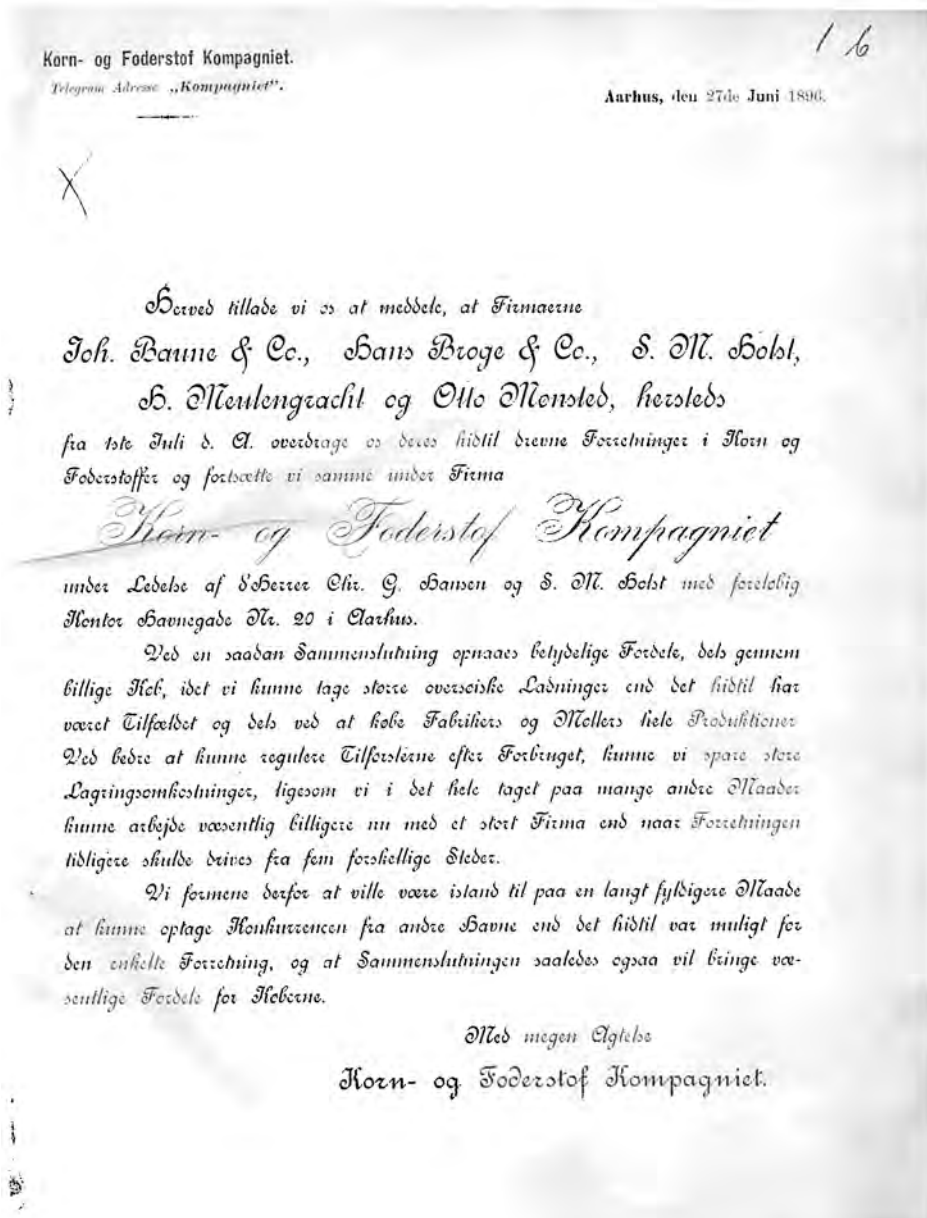 1 6
Korn- og Foderstof Kompagniet.
Telegram Adresse „Kompagniet".
Aarhus, den 27de Juni 1896.
X
Herved tillade vi os at meddele, at Firmaerne
Joh. Baune & Co., Hans Broge & Co., S. M. Holst,
H. Meulengracht og Otto Mønsted, hersteds
fra 1ste Juli d. A. overdrage os deres hidtil drevne Forretninger i Korn og
Foderstoffer og fortsætte vi samme under Firma
Korn- og Foderstof Kompagniet
under Ledelse af D'Herrer Chr. G. Hansen og S. M. Holst med foreløbig
Kontor Havnegade Nr. 20 i Aarhus.
Ved en saadan Sammenslutning opnaaes betydelige Fordele, dels gennem
billige Køb, idet vi kunne tage større oversøiske Ladninger end det hidtil har
været Tilfældet og dels ved at købe Fabrikers og Møllers hele Produktioner
Ved bedre at kunne regulere Tilførslerne efter Forbruget, kunne vi spare store
Lagringsomkostninger, ligesom vi i det hele taget paa mange andre Maader
kunne arbejde væsentlig billigere nu med et stort Firma end naar Forretningen
tidligere skulde drives fra fem forskellige Steder.
Vi formene derfor at ville være istand til paa en langt fyldigere Maade
at kunne optage Konkurrencen fra andre Havne end det hidtil var muligt for
den enkelte Forretning, og at Sammenslutningen saaledes ogsaa vil bringe væ-
sentlige Fordele for Køberne.
Med megen Agtelse
Korn- og Foderstof Kompagniet.